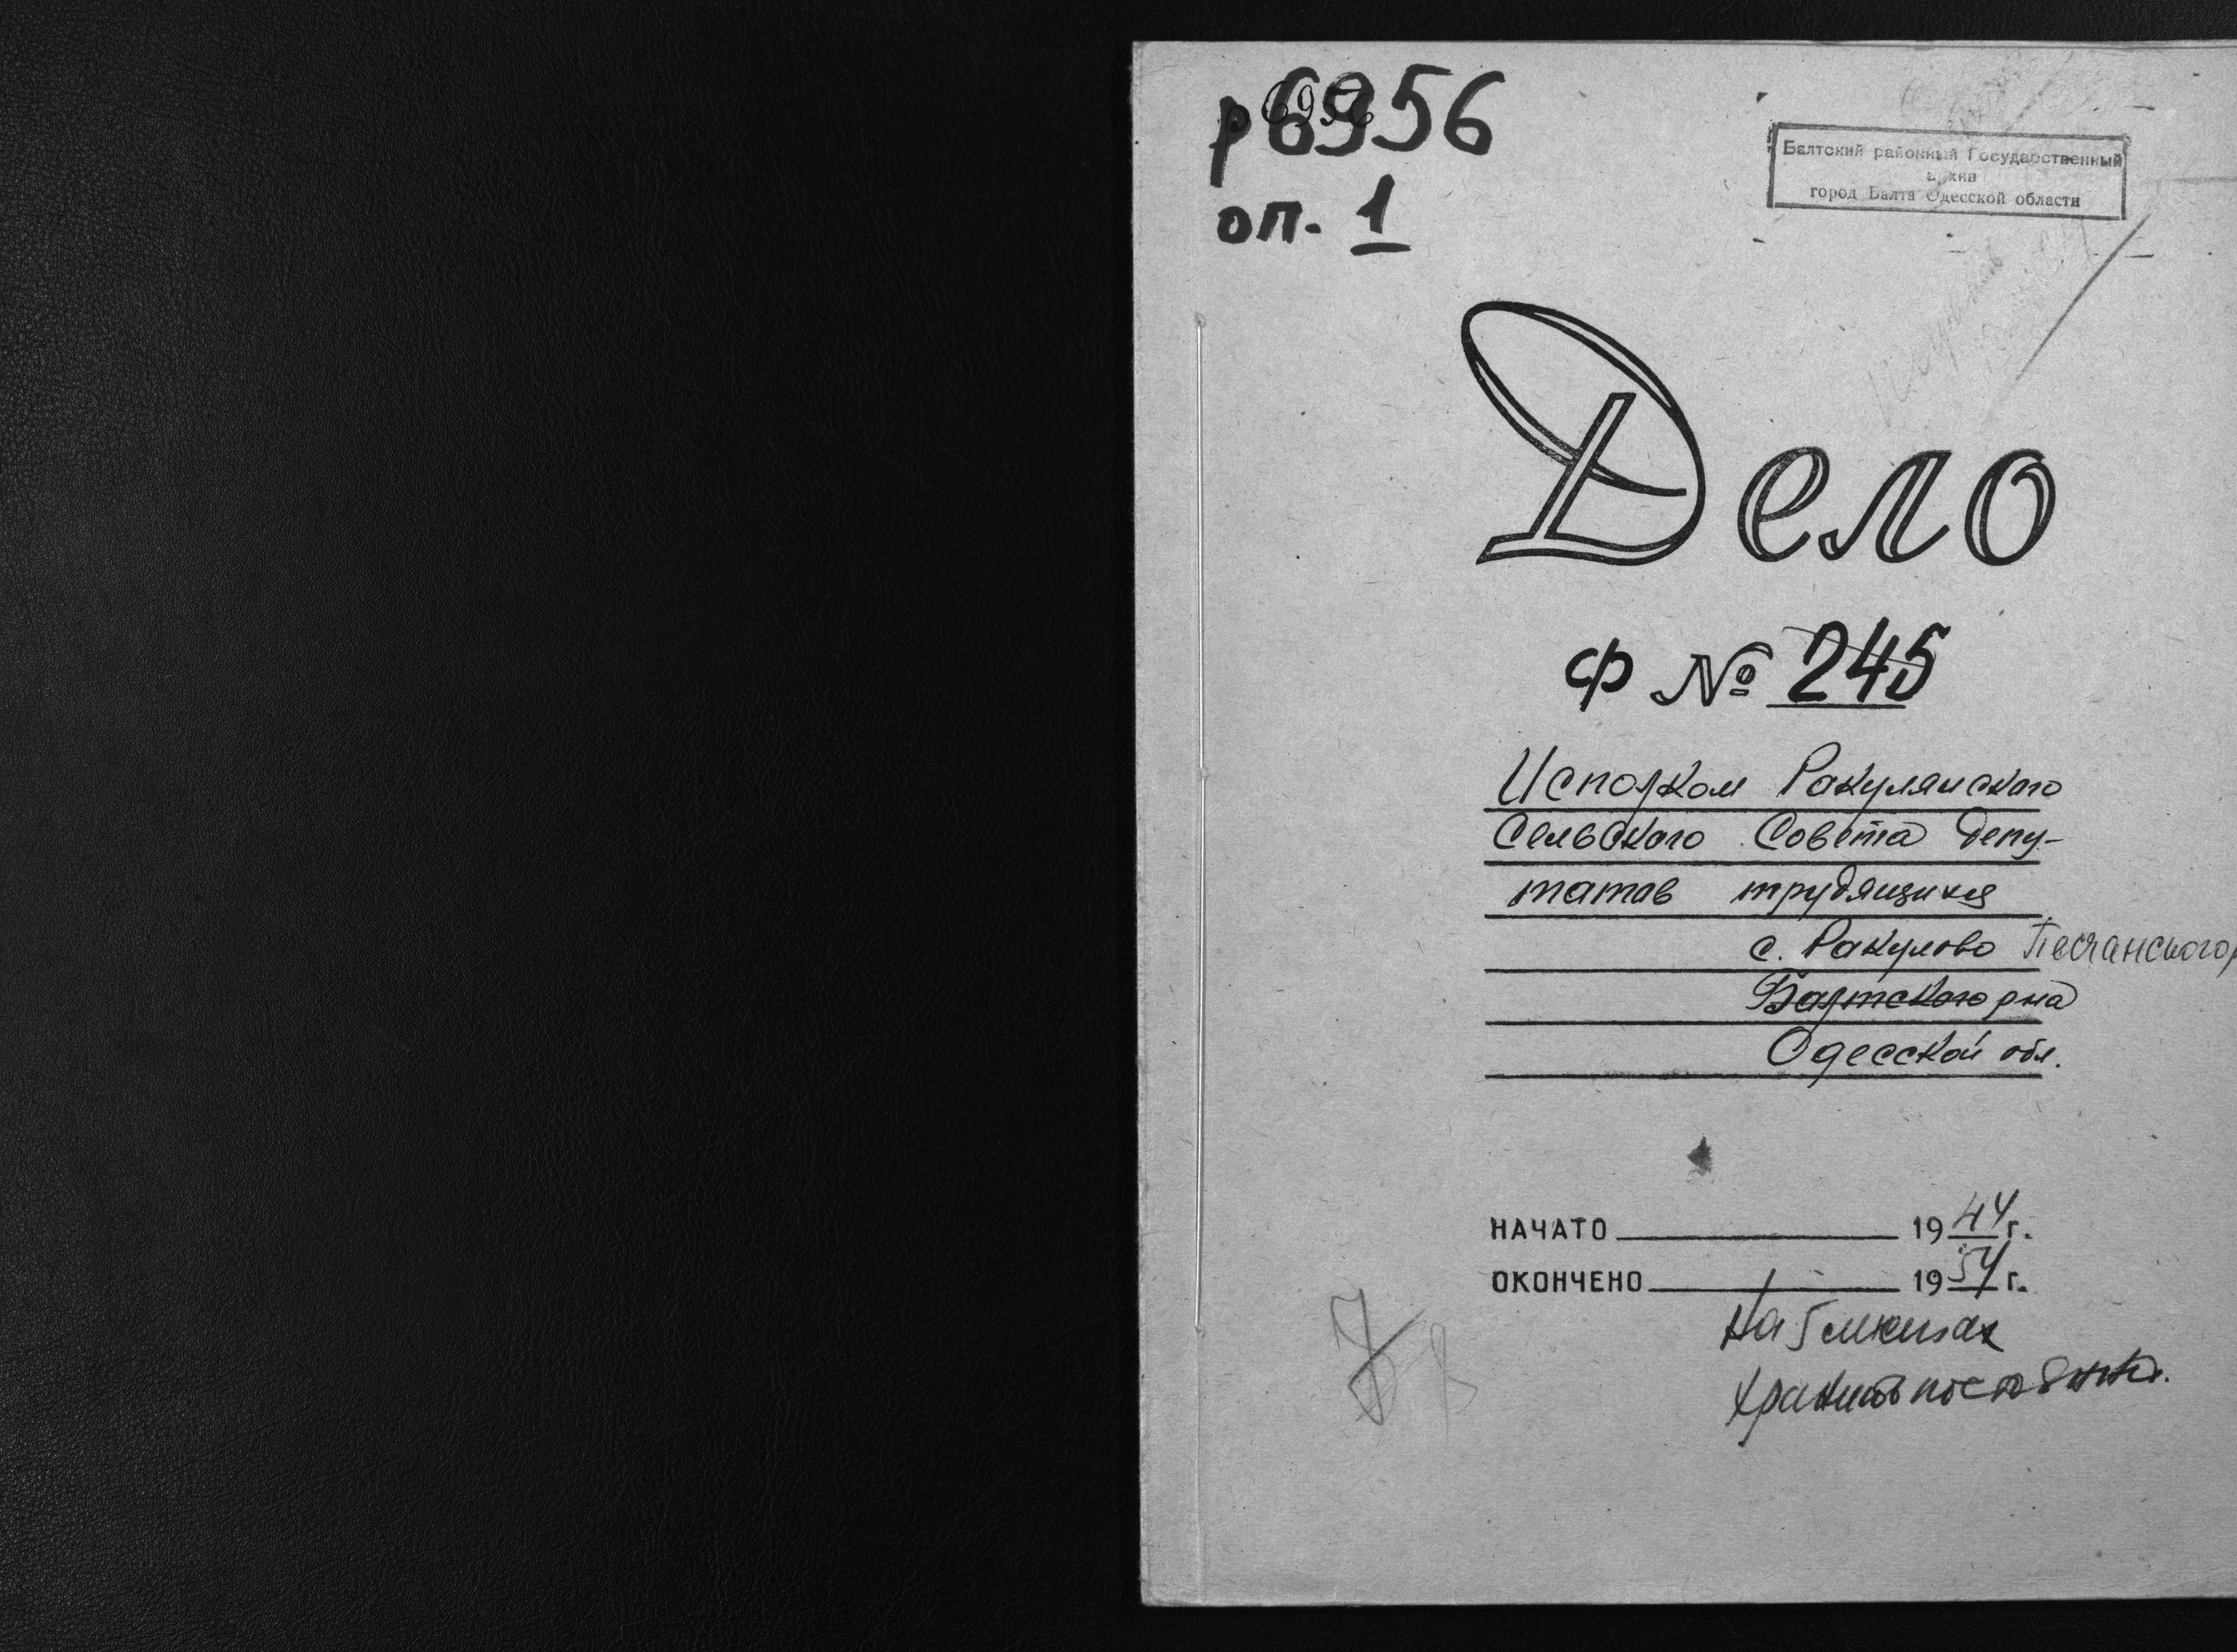 р6956
р6956
оп. 1
Балтский районный Государственный
архив
город Балта Одесской области
Дело
Ф № 245
Исполком Ракулянского
Сельского Совета депу-
татав трудящихся
с. Ракулово Песчанського р
Балтского рна
Одесской обл.
НАЧАТО 1944 г.
ОКОНЧЕНО 1954 г.
На 5
хранить постоянно.